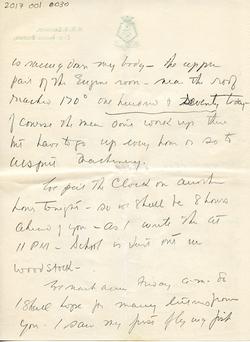 2017 001 0030
is racing down my body - the upper
part of the Engine room - near the roof
reaches 170° one hundred & seventy today
Of course the men don't work up there
but have to go up every hour or so to
machinery.
We put the Clock on another
hour tonight - so we shall be 8 hours
ahead of you - as I write this at
11 PM - School is just out in
Woodstock -
We reach Friday a.m. &
I shall hope for many letters from
you. I saw my first flying fish